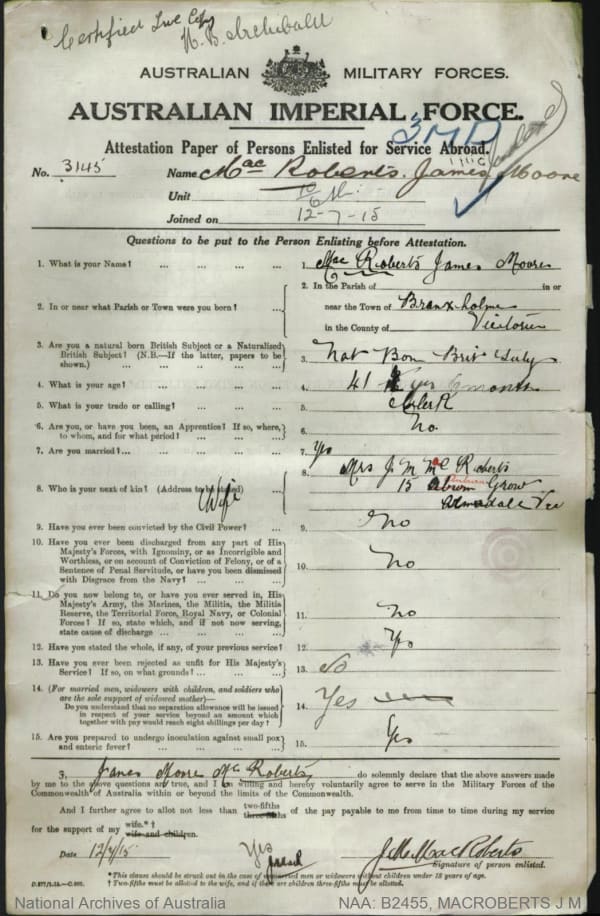 Certified True Copy
N. B. Archibald
AUSTRALIAN MILITARY FORCES.
AUSTRALIAN IMPERIAL FORCE.
3MD
Attestation Paper of Persons Enlisted for Service Abroad.
No. 3145 Name Mac Roberts. James Moore
Unit 10/6th
Joined on 12-7-15
Questions to be put to the Person Enlisting before Attestation.
1. What is your Name? ... ... ... ... 1. Mac Roberts James Moore
2. In or near what Parish or Town were you born? ... 2. In the Parish of in or
near the Town of Branxholme
in the County of Victoria
3. Are you a natural born British Subject or a Naturalized
British Subject? (N.B.—If the latter, papers to be
shown.) ... ... ... ... 3. Nat Born Brit Subj
4. What is your age? ... ... ... ... 4. 41 yrs months
5. What is your trade or calling? ... ... ... 5. Clerk
6. Are you, or have you been, an Apprentice? If so, where,
to whom, and for what period? ... ... ... 6. No.
7. Are you married?... ... ... ... 7. Yes
8. Who is your next of kin? (Address to be stated) Wife 8. Mrs J. M Mac Roberts
15 Auburn Grove
Armadale Vic
9. Have you ever been convicted by the Civil Power? ... 9. No
10. Have you ever been discharged from any part of His
Majesty's Forces, with Ignominy, or as Incorrigible and
Worthless, or on account of Conviction of Felony, or of a
Sentence of Penal Servitude, or have you been dismissed
with Disgrace from the Navy? ... ... ... 10. No
11. Do you now belong to, or have you ever served in, His
Majesty's Army, the Marines, the Militia, the Militia
Reserve, the Territorial Force, Royal Navy, or Colonial
Forces? If so, state which, and if not now serving,
state cause of discharge ... ... ... ... 11. No
12. Have you stated the whole, if any, of your previous service? 12. Yes
13. Have you ever been rejected as unfit for His Majesty's
Service? If so, on what grounds? ... ... ... 13. No
14. (For married men, widowers with children, and soldiers who
are the sole support of widowed mother)—
Do you understand that no separation allowance will be issued
in respect of your service beyond an amount which
together with pay would reach eight shillings per day? 14. Yes
15. Are you prepared to undergo inoculation against small pox
and enteric fever? ... ... ... ... 15. Yes
I, James Moore Mac Roberts do solemnly declare that the above answers made
by me to the above questions are true, and I am willing and hereby voluntarily agree to serve in the Military Forces of the
Commonwealth of Australia within or beyond the limits of the Commonwealth.
And I further agree to allot not less than two-fifths three-fifths of the pay payable to me from time to time during my service
for the support of my wife.*† wife and children.
Date 12/7/15 Yes J. M. Mac Roberts
Signature of person enlisted.
*This clause should be struck out in the case of unmarried men or widowers without children under 18 years of age.
† Two-fifths must be allotted to the wife, and if there are children three-fifths must be allotted.
National Archives of Australia NAA: B2455, MACROBERTS J M